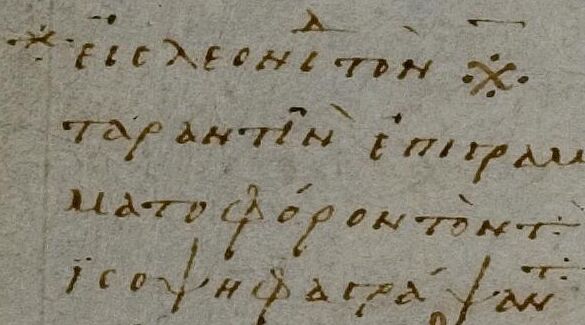 εἰς λεονι^δ τὸν
ταραντῖν ἐπιγραμ
ματοφόρον τὸν τ
ϊσοψηφα γράψαν^τ